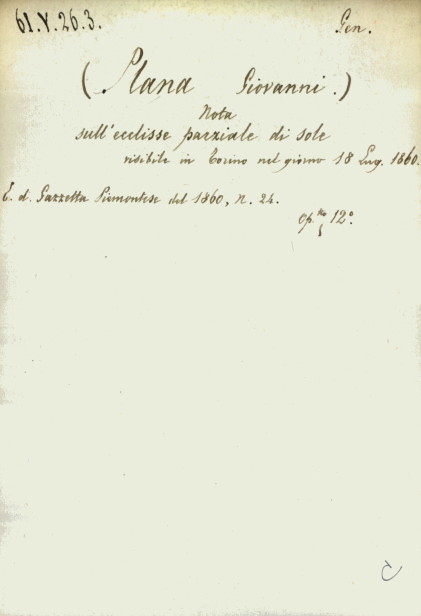 61.V.26.3.
Gen.
(Plana Giovanni.)
Nota
sull'ecclisse parziale di sole
visibile in Torino nel giorno 18 Lug. 1860.
E. d. Gazzetta Piemontese del 1860, n. 24.
op.lo 12º.
C